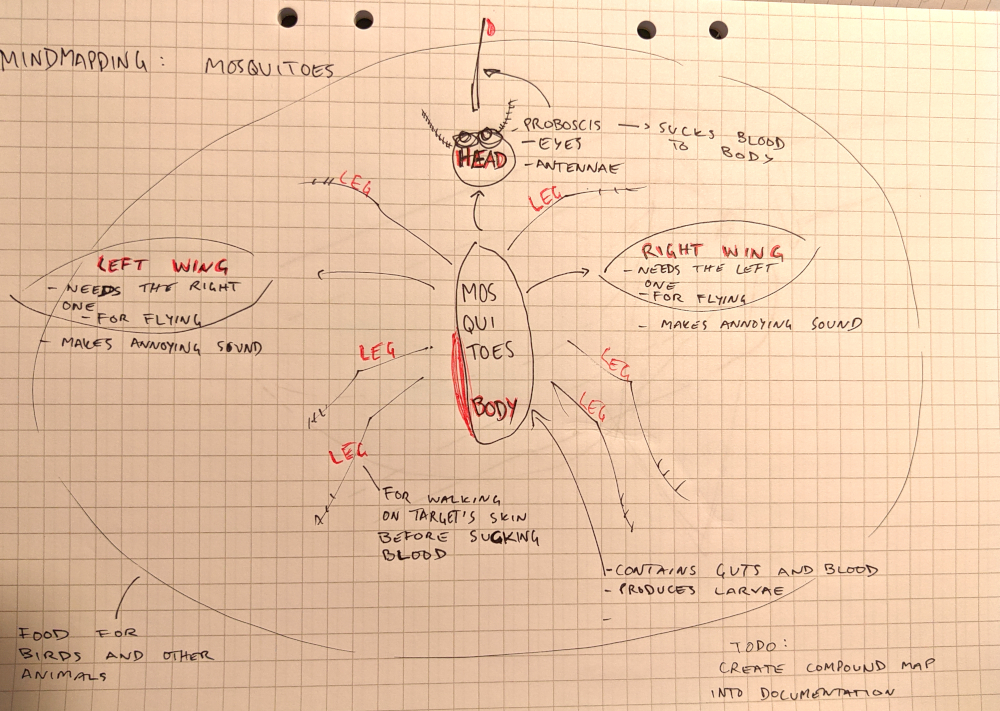 MINDMAPPING: MOSQUITOES
HEAD
PROBOSCIS → SUCKS BLOOD
TO BODY
- EYES
- ANTENNAE
LEG
LEG
LEFT WING
- NEEDS THE RIGHT
ONE
- FOR FLYING
- MAKES ANNOYING SOUND
RIGHT WING
- NEEDS THE LEFT
ONE
- FOR FLYING
- MAKES ANNOYING SOUND
MOS
QUI
TOES
BODY
LEG
LEG
LEG
LEG
FOR WALKING
ON TARGET'S SKIN
BEFORE SUCKING
BLOOD
- CONTAINS GUTS AND BLOOD
- PRODUCES LARVAE
-
FOOD FOR
BIRDS AND OTHER
ANIMALS
TODO:
CREATE COMPOUND MAP
INTO DOCUMENTATION